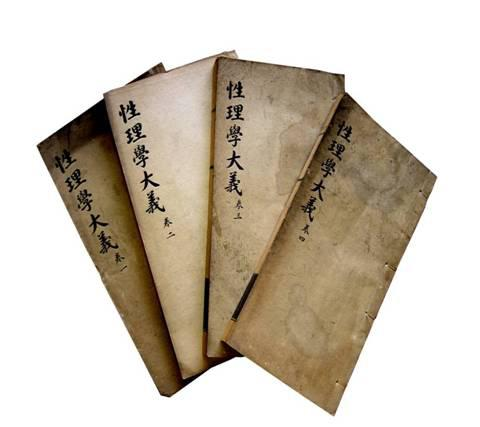 性理學大義 卷一
性理學大義 卷二
性理學大義 卷三
性理學大義 卷四